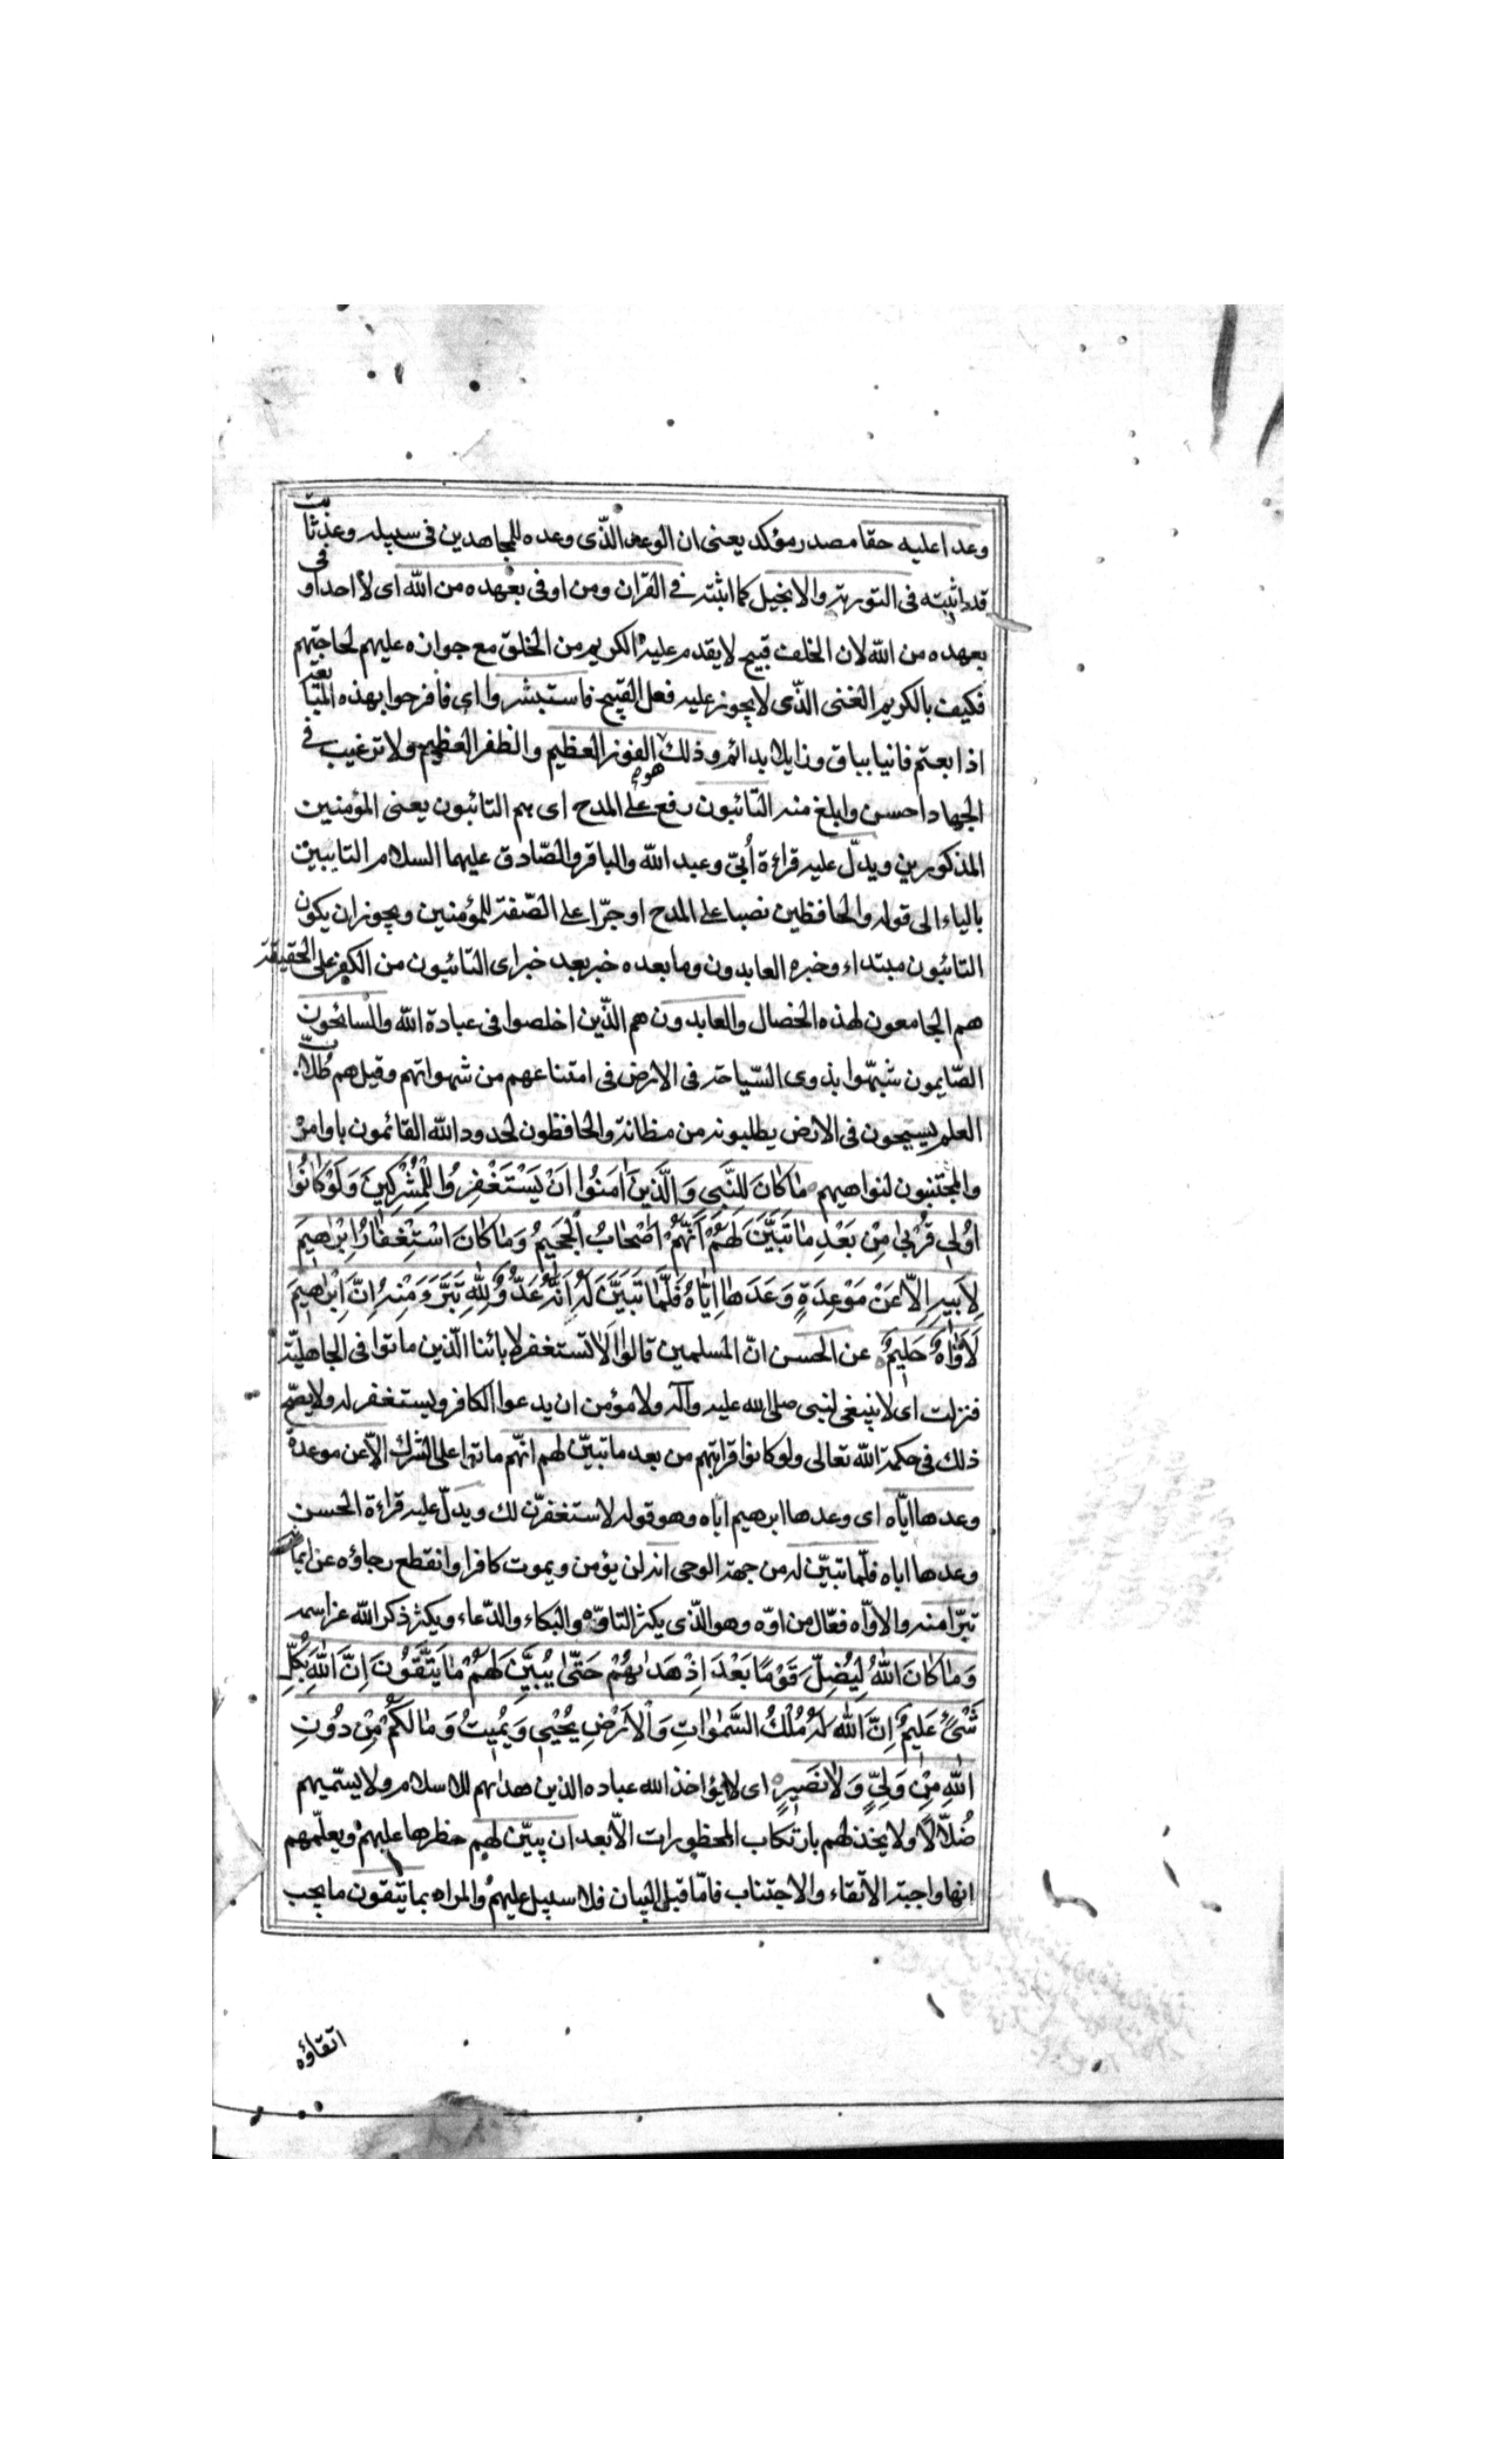 وعدا عليه حقا مصدر مؤكد يعنى ان الوعد الّذى وعده للمجاهدين فى سبيله وعد ثابت
قد اثبته فى التورية والانجيل كما اثبته فى القران ومن اوفى بعهده من الله اى لا احد اوفى
بعهده من الله لان الخلف قبيح لا يقدم عليه الكريم من الخلق مع جوازه عليهم لحاجتهم
فكيف بالكريم الغنى الذّى لا يجوز عليه فعل القبيح فاستبشروا اى فافرحوا بهذه المبايعة
اذا بعتم فانيا بباق وزايلا بدائم وذلك هو الفوز العظيم والظفر العظيم ولا ترغيب فى
الجهاد احسن وابلغ منه التّائبون رفع على المدح اى هم التائبون يعنى المؤمنين
المذكورين ويدلّ عليه قراءة أبىّ وعبد الله والباقر والصّادق عليهما السلام التايبين
بالياء الى قوله والحافظين نصبا على المدح او جرّا على الصّفة للمؤمنين ويجوز ان يكون
التائبون مبتداء وخبره العابدون وما بعده خبر بعد خبر اى التائبون من الكفر على الحقيقة
هم الجامعون لهذه الخصال والعابدون هم الذّين اخلصوا فى عبادة الله والسائحون
الصّايمون شبّهوا بذوى السّياحة فى الارض فى امتناعهم من شهواتهم وقيل هم طلاب
العلم يسيحون فى الارض يطلبونه من مظانة والحافظون لحدود الله القائمون باوامره
والمجتنبون لنواهيهم مٰا كٰانَ لِلنَّبِى وَالَّذينَ اٰمَنُوا اَنْ يَسْتَغْفِرُوا لِلْمُشْرِكينَ وَلَوْ كٰانُوا
اوُلى قُرْبىٰ مِنْ بَعْدِ مٰا تَبَيَّنَ لَهُمْ اَنَّهُمْ اَصْحٰابُ الْجَحيمُ وَمٰا كٰانَ اسْتِغْفٰارُ اِبْرٰهيمَ
لِاَبيهِ اِلّا عَنْ مَوْعِدَةٍ وَعَدَهٰا اِيّٰاهُ فَلَمّٰا تَبَيَّنَ لَهُ اَنَّهُ عَدُوٌّ لِلّٰهِ تَبَرَّءَ مِنْهُ اِنَّ اِبْرٰهيمَ
لَاَوّٰاهٌ حَليمٌ عن الحسن انّ المسلمين قالوا الا تستغفر لابائنا الّذين ماتوا فى الجاهليّة
فنزلت اى لا ينبغى لنبى صلى الله عليه وآله ولا مؤمن ان يدعوا الكافر ويستغفر له ولا يصّح
ذلك فى حكمة الله تعالى ولو كانوا قرابتهم من بعد ما تبيّن لهم انهّم ماتوا على الشرك الاّ عن موعدة
وعدها ايّاه اى وعدها ابرهيم اباه وهو قوله لاستغفرّن لك ويدلّ عليه قراءة الحسن
وعدها اباه فلّما تبيّن له من جهة الوحى انه لن يؤمن ويموت كافرا وانقطع رجاؤه عن ايمانه
تبرّا منه والاوّاه فعّال من اوّه وهو الذّى يكثر التاوّه والبكاء والدّعاء ويكثر ذكر الله عز اسمه
وَمٰا كٰانَ اللهُ لِيُضِلَّ قَوْمًا بَعْدَ اِذْ هَدٰيهُمْ حَتّىٰ يُبَيِّنَ لَهُمْ مٰا يَتَّقُونَ اِنَّ اللهَ بِكُلِّ
شَىْءٍ عَليمٌ اِنَّ اللهَ لَهُ مُلْكُ السَّمٰوٰاتِ وَالْاَرْضِ يُحْيى وَيُميتُ وَمٰا لَكُمْ مِنْ دُونِ
اللهِ مِنْ وَلِىٍّ وَلٰا نَصيرٍ اى لا يؤاخذ الله عباده الذين هداهم للاسلام ولا يسّميهم
ضُلّالًا ولا يخذلهم بارتكاب المحظورات الاّ بعد ان يبيّن لهم حظرها عليهم ويعلّمهم
انها واجبة الاتقاء والاجتناب فامّا قبل البيان فلا سبيل عليهم والمراد بما يتقون ما يجب
اتقاؤه